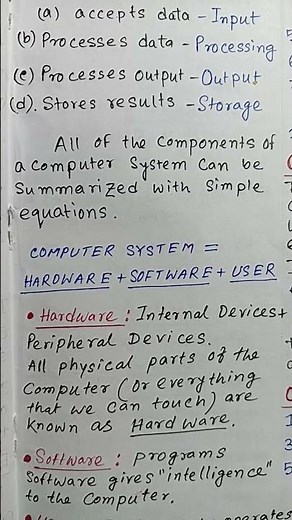 (a) accepts data - Input
(b) Processes data - Processing
(c) Processes output - Output
(d). Stores results - Storage
All of the components of
a computer System Can be
Summarized with Simple
equations.
COMPUTER SYSTEM =
HARDWARE + SOFTWARE + USER
• Hardware : Internal Devices+
Peripheral Devices.
All physical parts of the
Computer (Or everything
that we can touch) are
known as Hardware.
• Software : programs
Software gives "intelligence"
to the Computer.